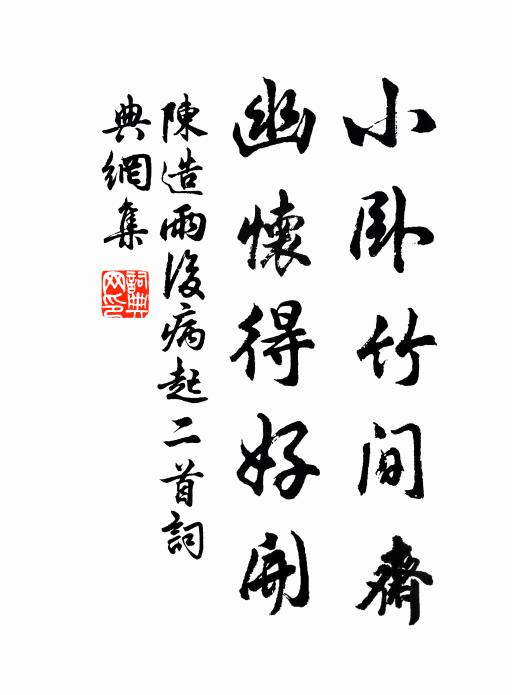 小卧竹间齋
幽懷得好開
陳造雨後病起二首詞
典網集
詞典网印